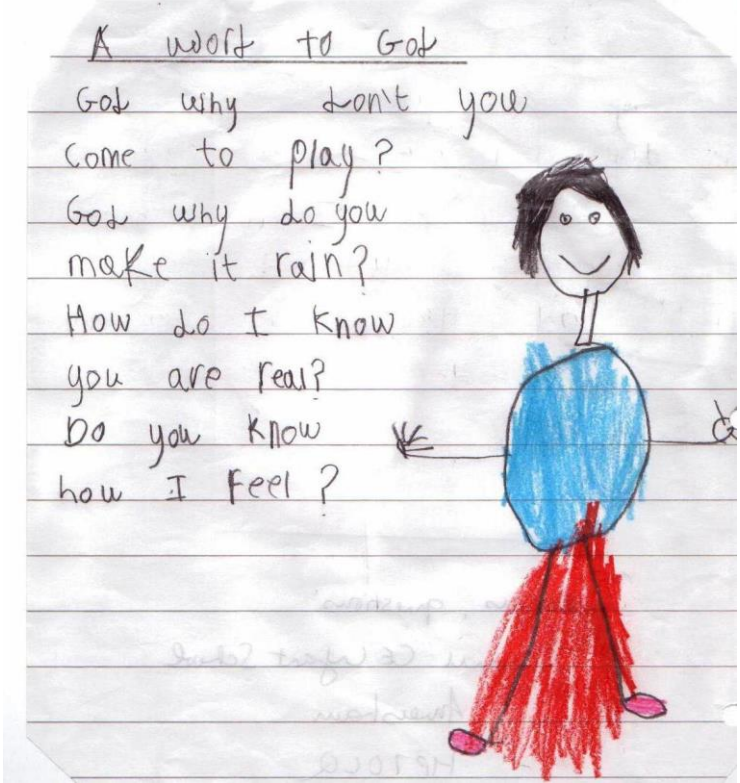 A word to God
God why don't you
come to play?
God why do you
make it rain?
How do I know
you are real?
Do you know
how I feel?
School
HP7 0LQ